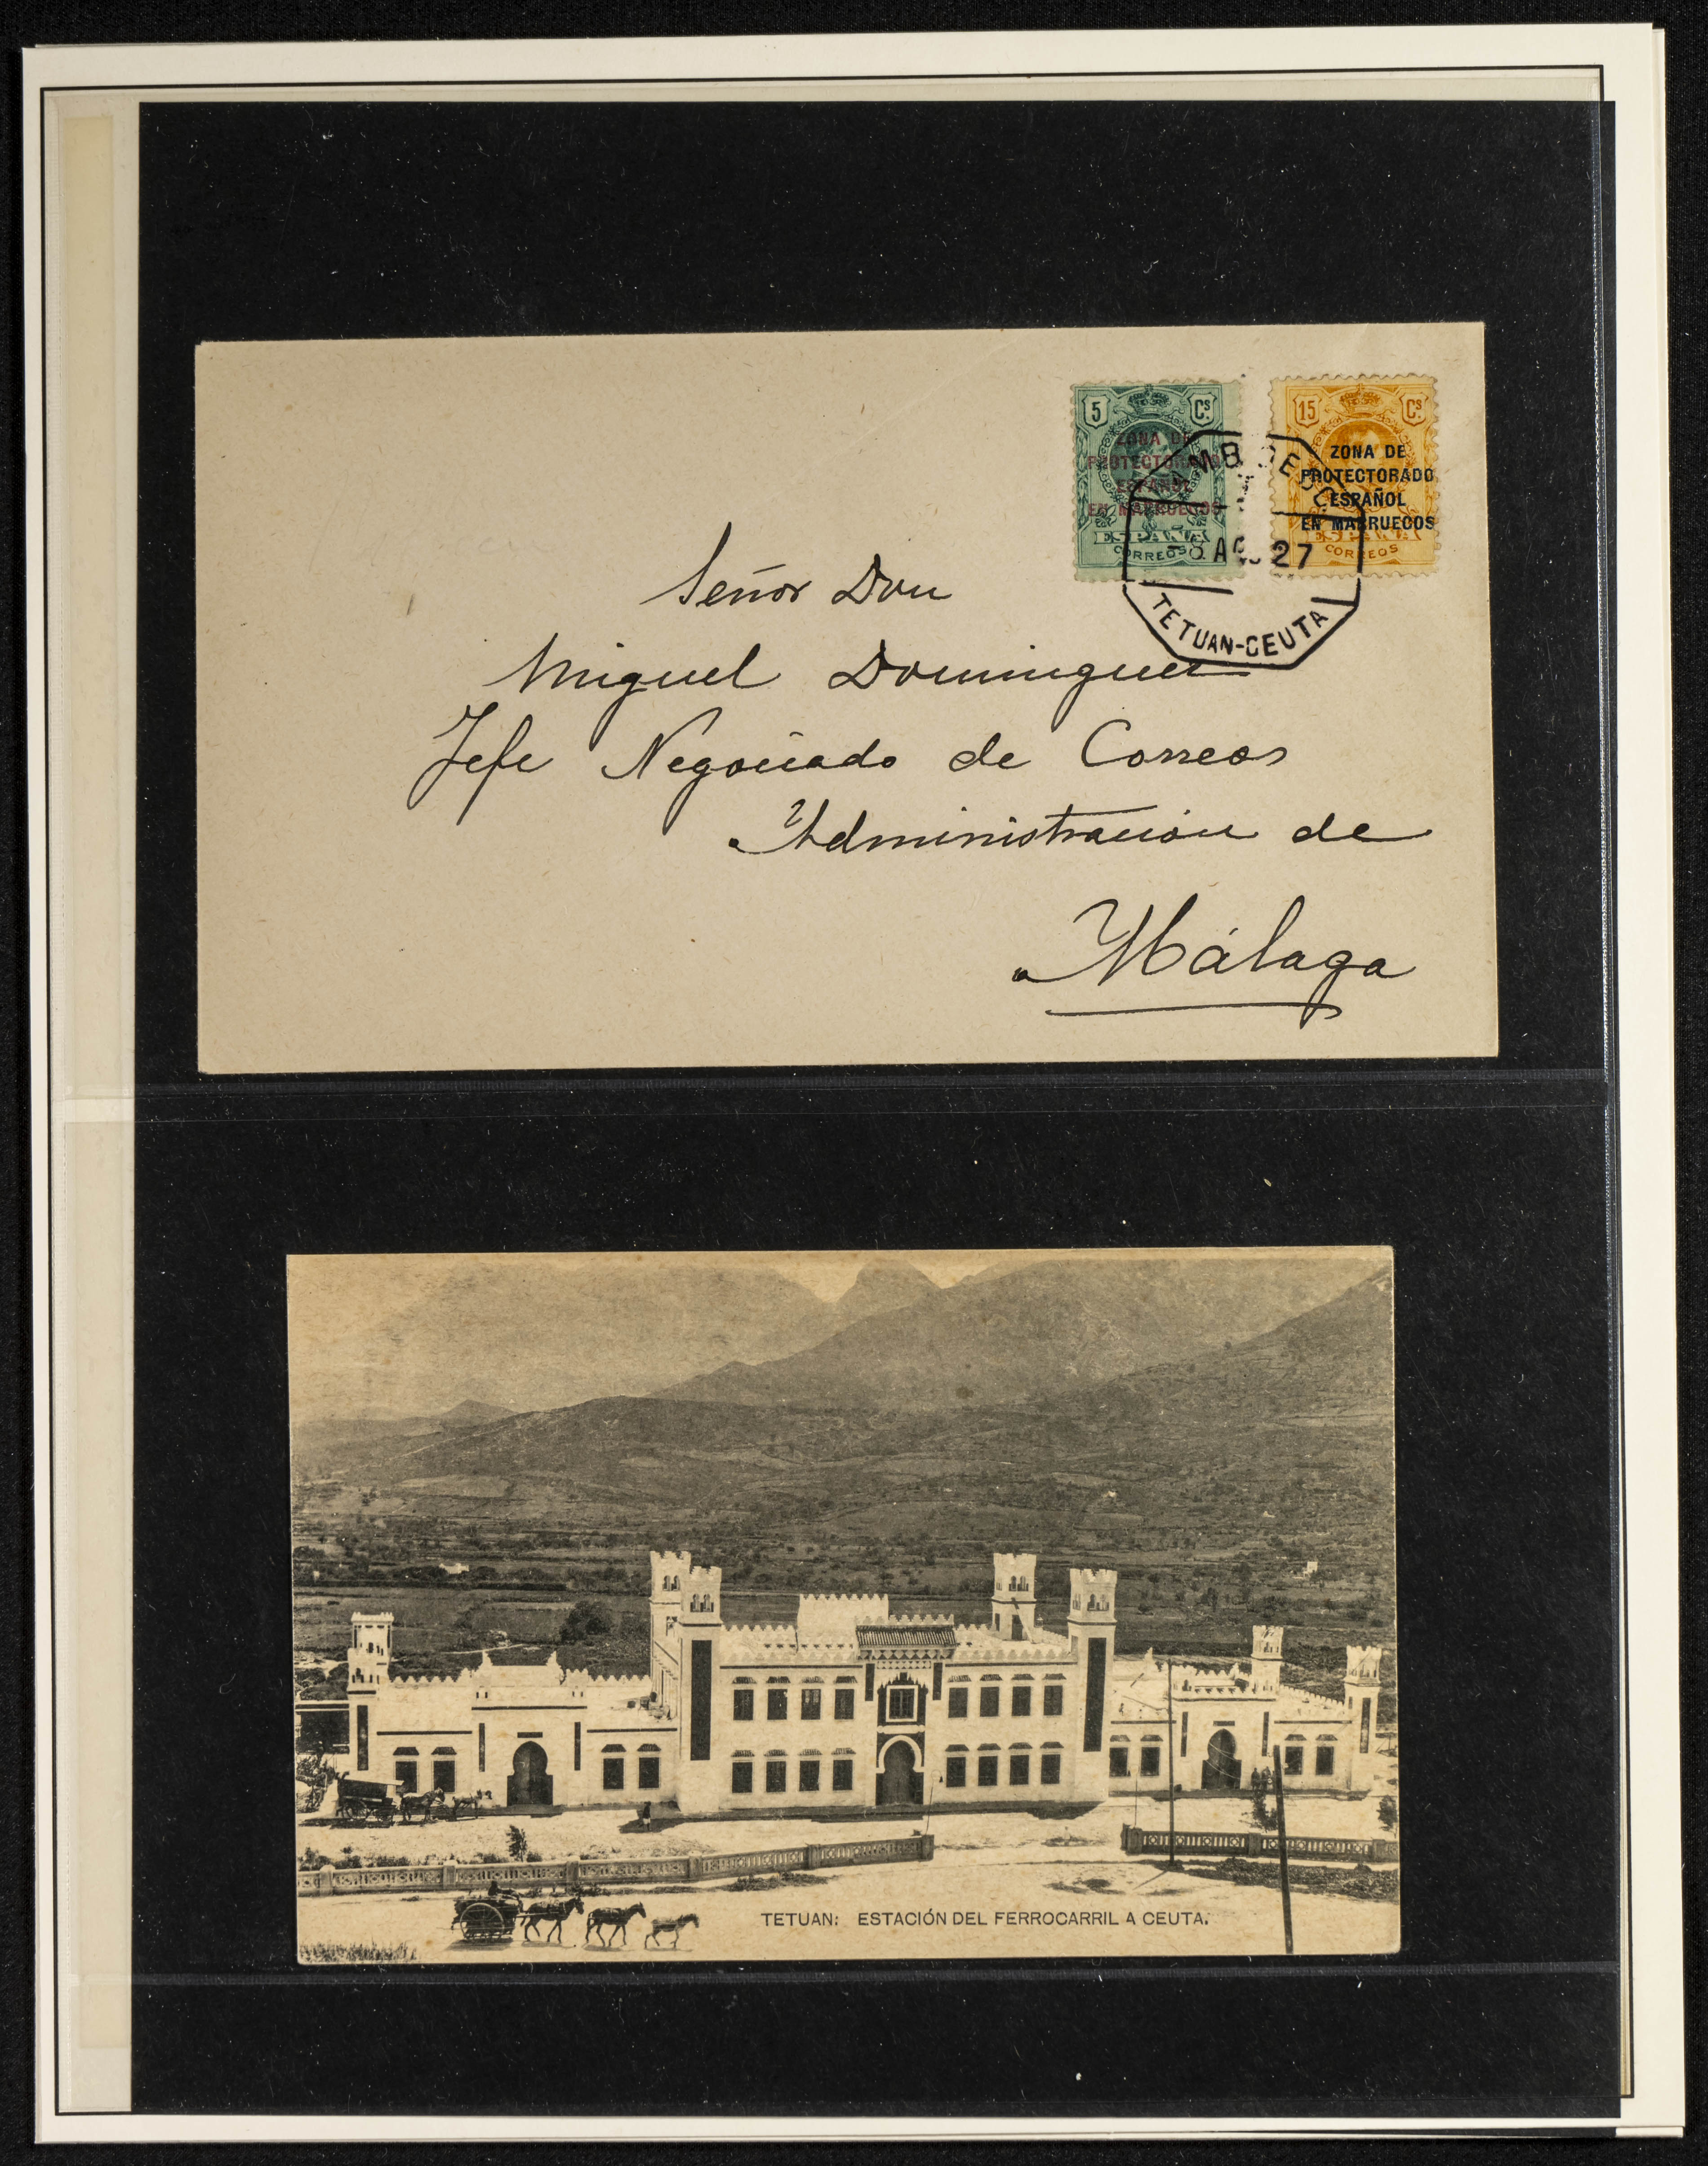 5 Cs
ZONA DE
PROTECTORADO
ESPAÑOL
EN MARRUECOS
ESPAÑA
CORREOS
15 Cs
ZONA DE
PROTECTORADO
ESPAÑOL
EN MARRUECOS
ESPAÑA
CORREOS
-8 AG 27
TETUAN-CEUTA
Señor Don
Miguel Dominguez
Jefe Negociado de Correos
Administración de
Málaga
TETUAN: ESTACIÓN DEL FERROCARRIL A CEUTA.